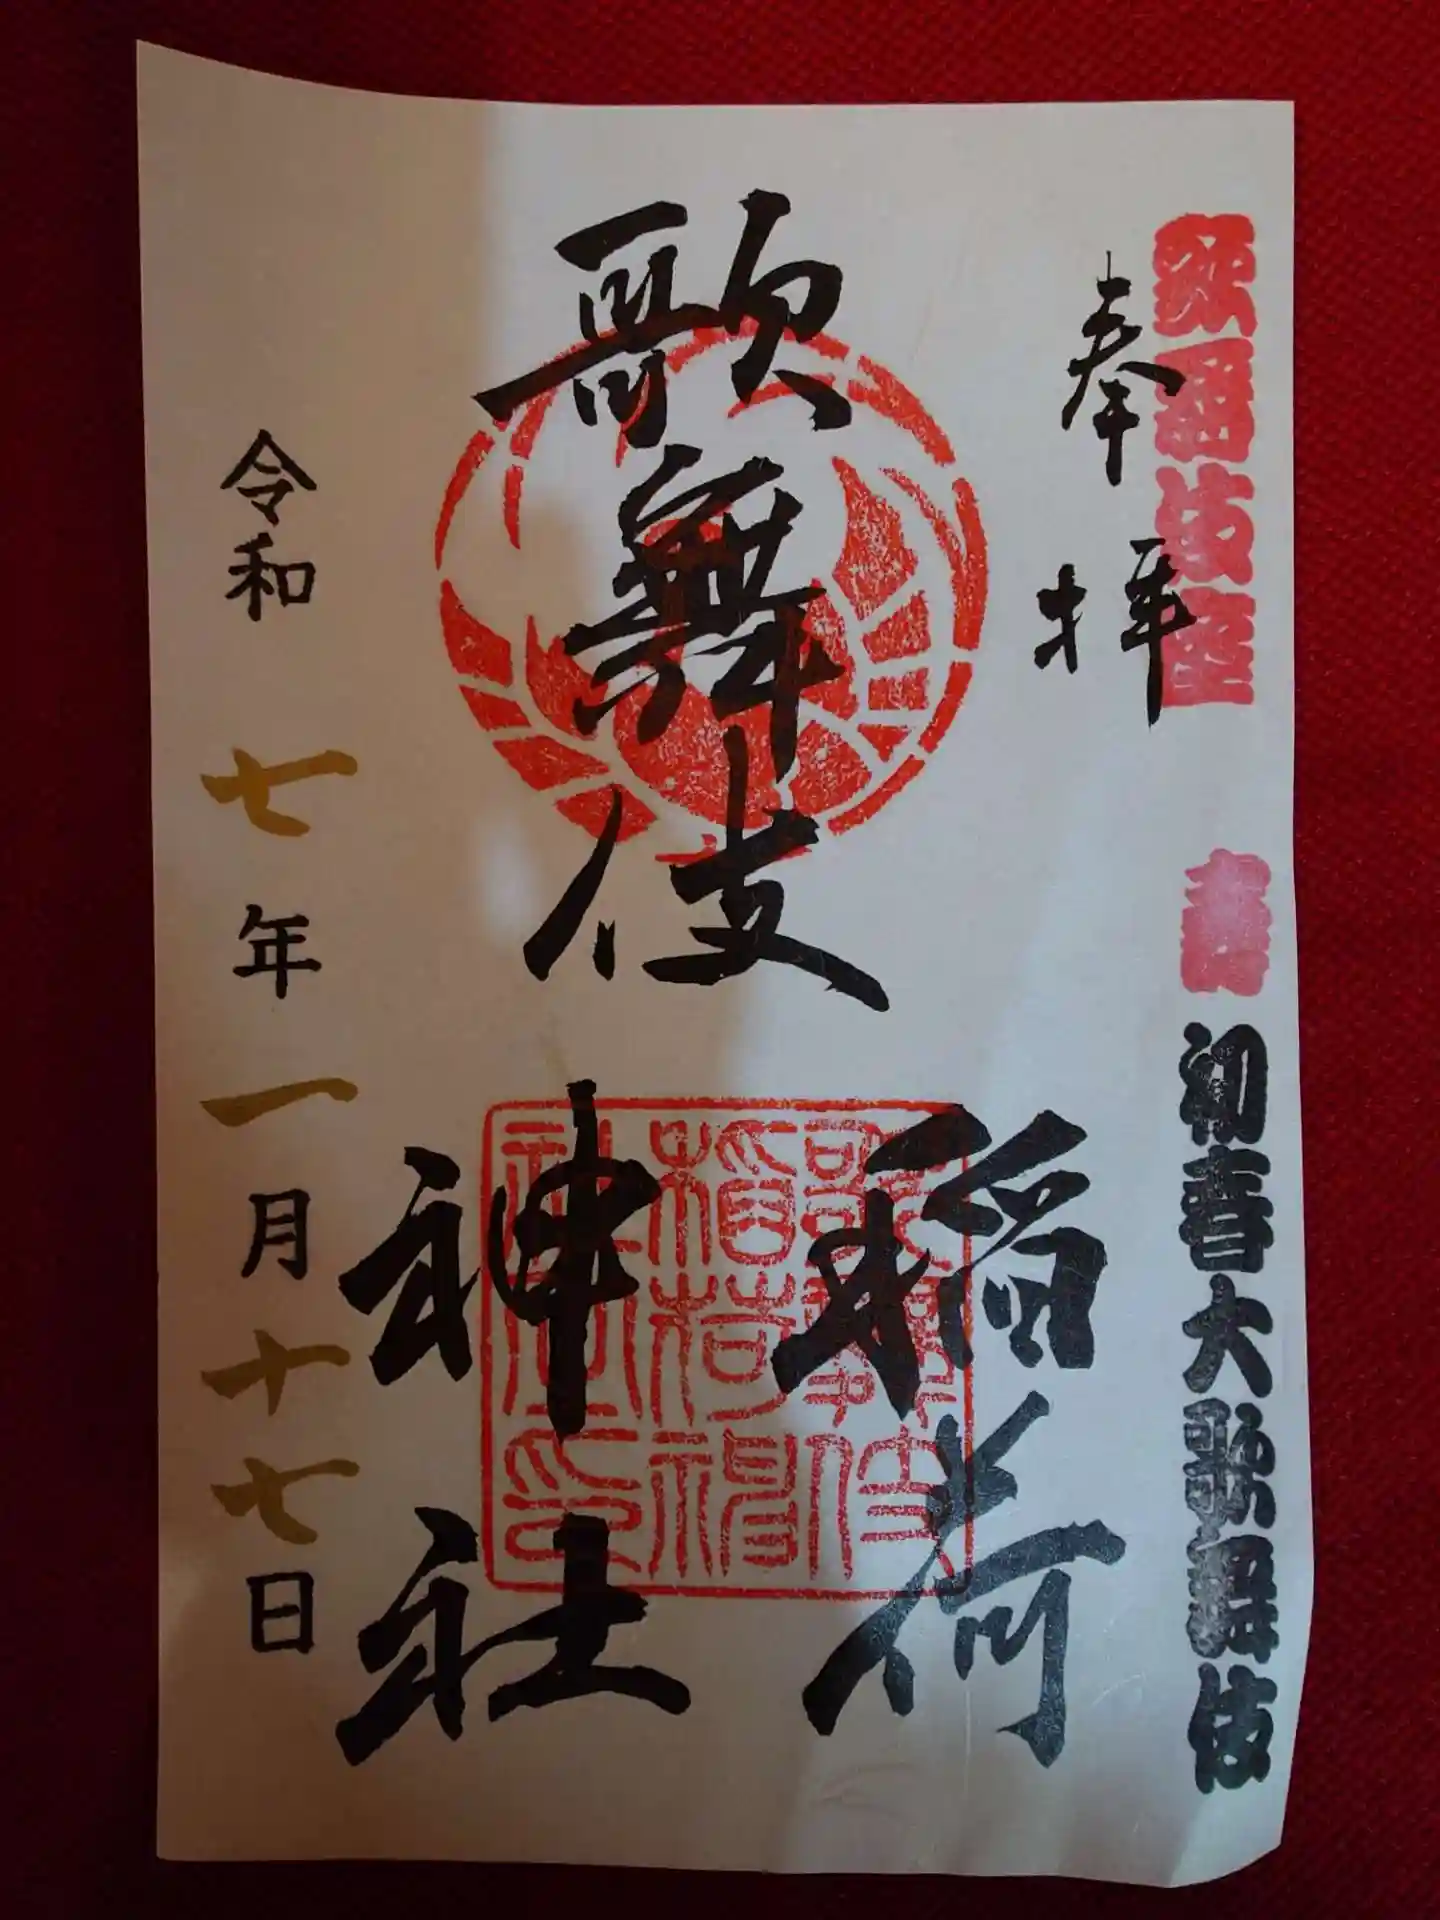 歌舞伎座
寿
初春大歌舞伎
奉拝
歌舞伎
稲荷
神社
歌舞伎
稲荷神
社之印
令和七年一月十七日